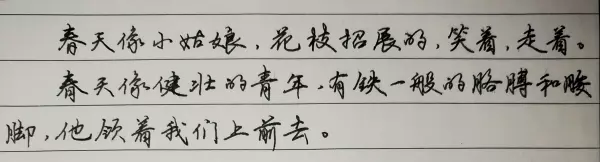 春天像小姑娘，花枝招展的，笑着，走着。
春天像健壮的青年，有铁一般的胳膊和腰
脚，他领着我们上前去。